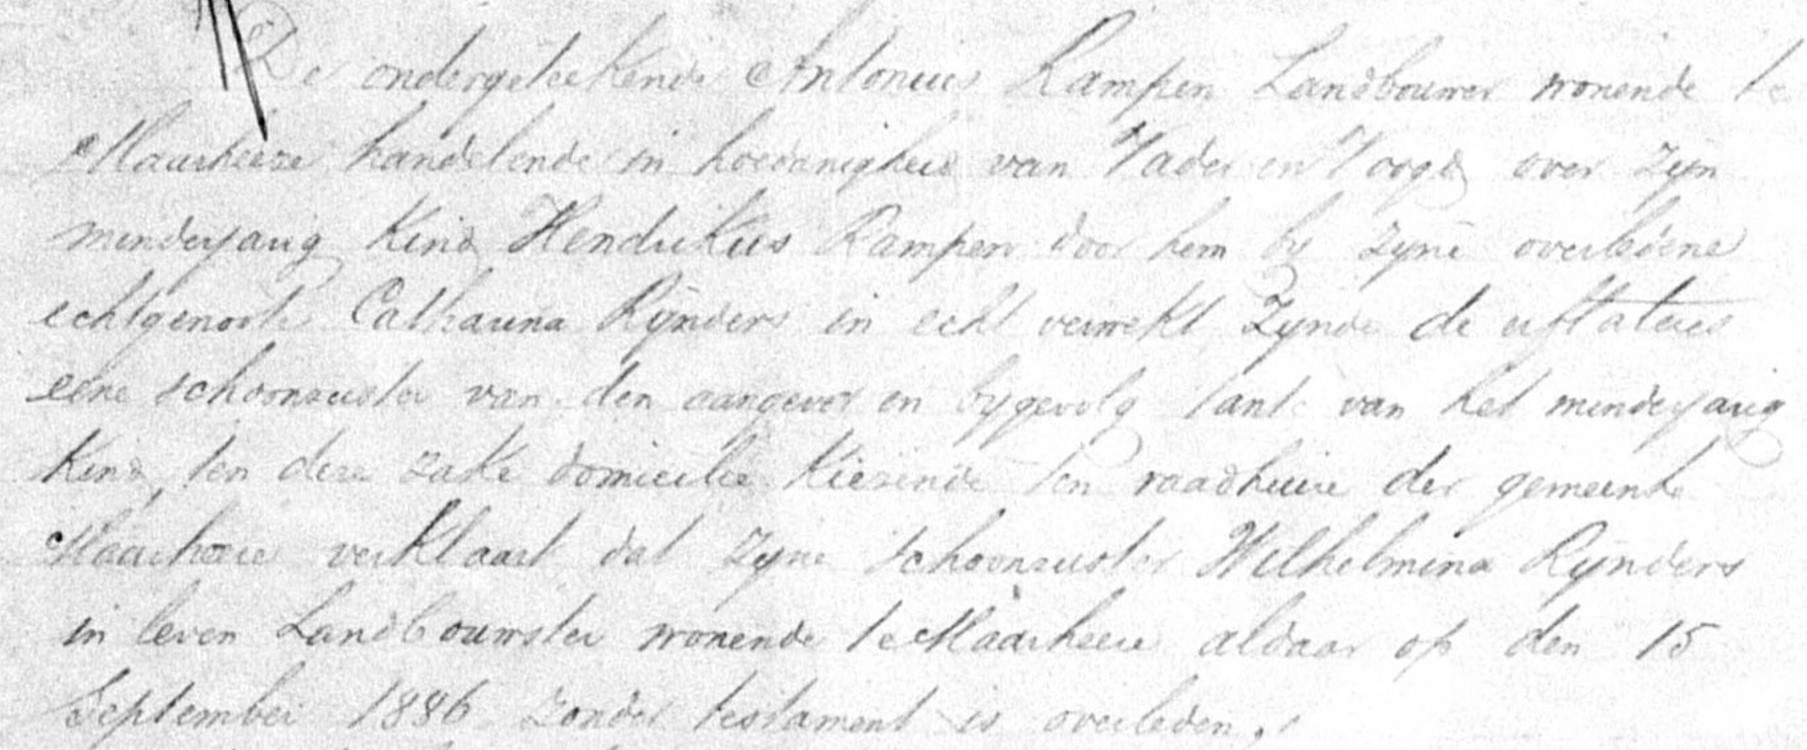 De ondergeteekende Antonius Rampen Landbouwer wonende te
Maarheeze handelende in hoedanigheid van Vader en Voogd over zijn
minderjarig Kind Hendrikus Rampen door hem bij zyne overledene
echtgenoote Catharina Rijnders in echt verwekt Zynde de erflateres
eene schoonzuster van den aangever en bijgevolg tante van het minderjarig
Kind, ten deze zake domicilie kiezende ten raadhuize der gemeente
Maarheeze verklaart dat zyne schoonzuster Wilhelmina Rijnders
in leven Landbouwster wonende te Maarheeze aldaar op den 15
September 1886 zonder testament is overleden,